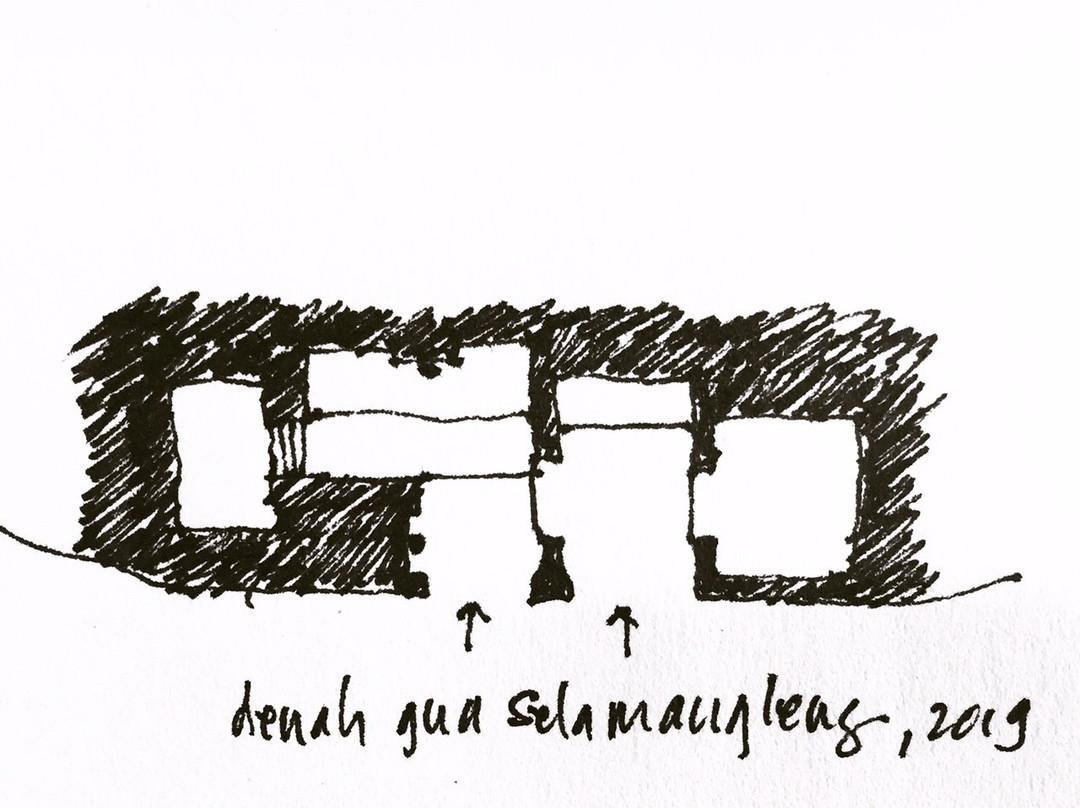 denah gua Selamangleng, 2019